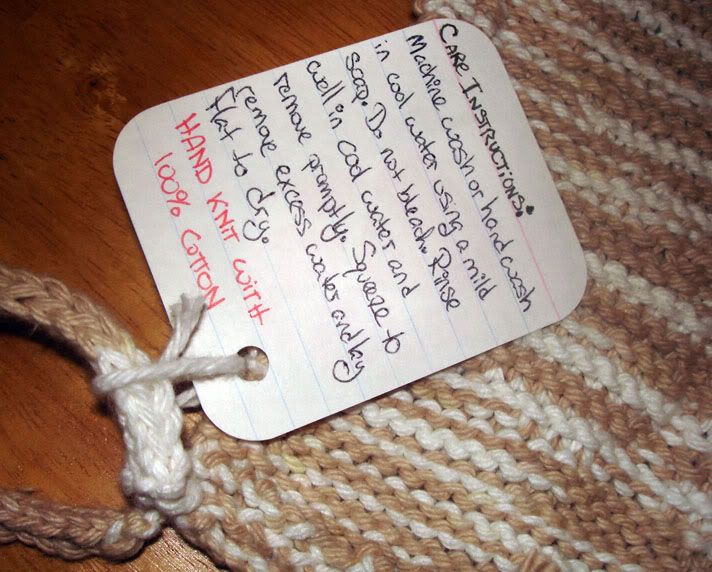 CARE INSTRUCTIONS:
Machine wash or hand wash
in cool water using a mild
soap. Do not bleach. Rinse
well in cool water and
remove promptly. Squeeze to
remove excess water and lay
flat to dry.
HAND KNIT WITH
100% COTTON